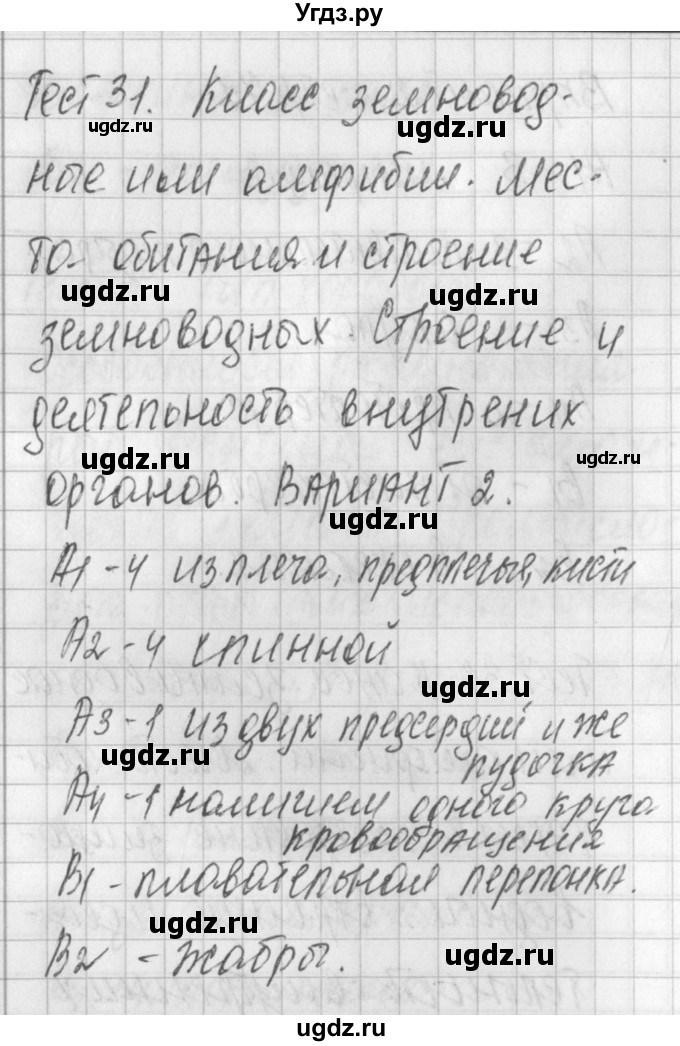 Угдз.ру
Тест 31. Класс земновод-
ugdz.ru ugdz.ru
ные или амфибии. Мес-
ugdz.ru
то обитания и строение
ugdz.ru ugdz.ru
земноводных. Строение и
деятельность внутрених
ugdz.ru ugdz.ru
органов. Вариант 2.
ugdz.ru
А1 - 4 из плеча, предплечья, кисти
А2 - 4 спинной
ugdz.ru
А3 - 1 из двух предсердий и же
лудочка
ugdz.ru
А4 - 1 наличием одного круга
кровообращения
В1 - плавательная перепонка.
ugdz.ru
В2 - жабры.
ugdz.ru
ugdz.ru